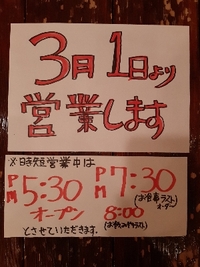 3月1日より
営業します
※時短営業中は
PM 5:30 PM 7:30
(お食事ラスト
オーダー)
オープン 8:00
(お飲みものラスト)
とさせていただきます。